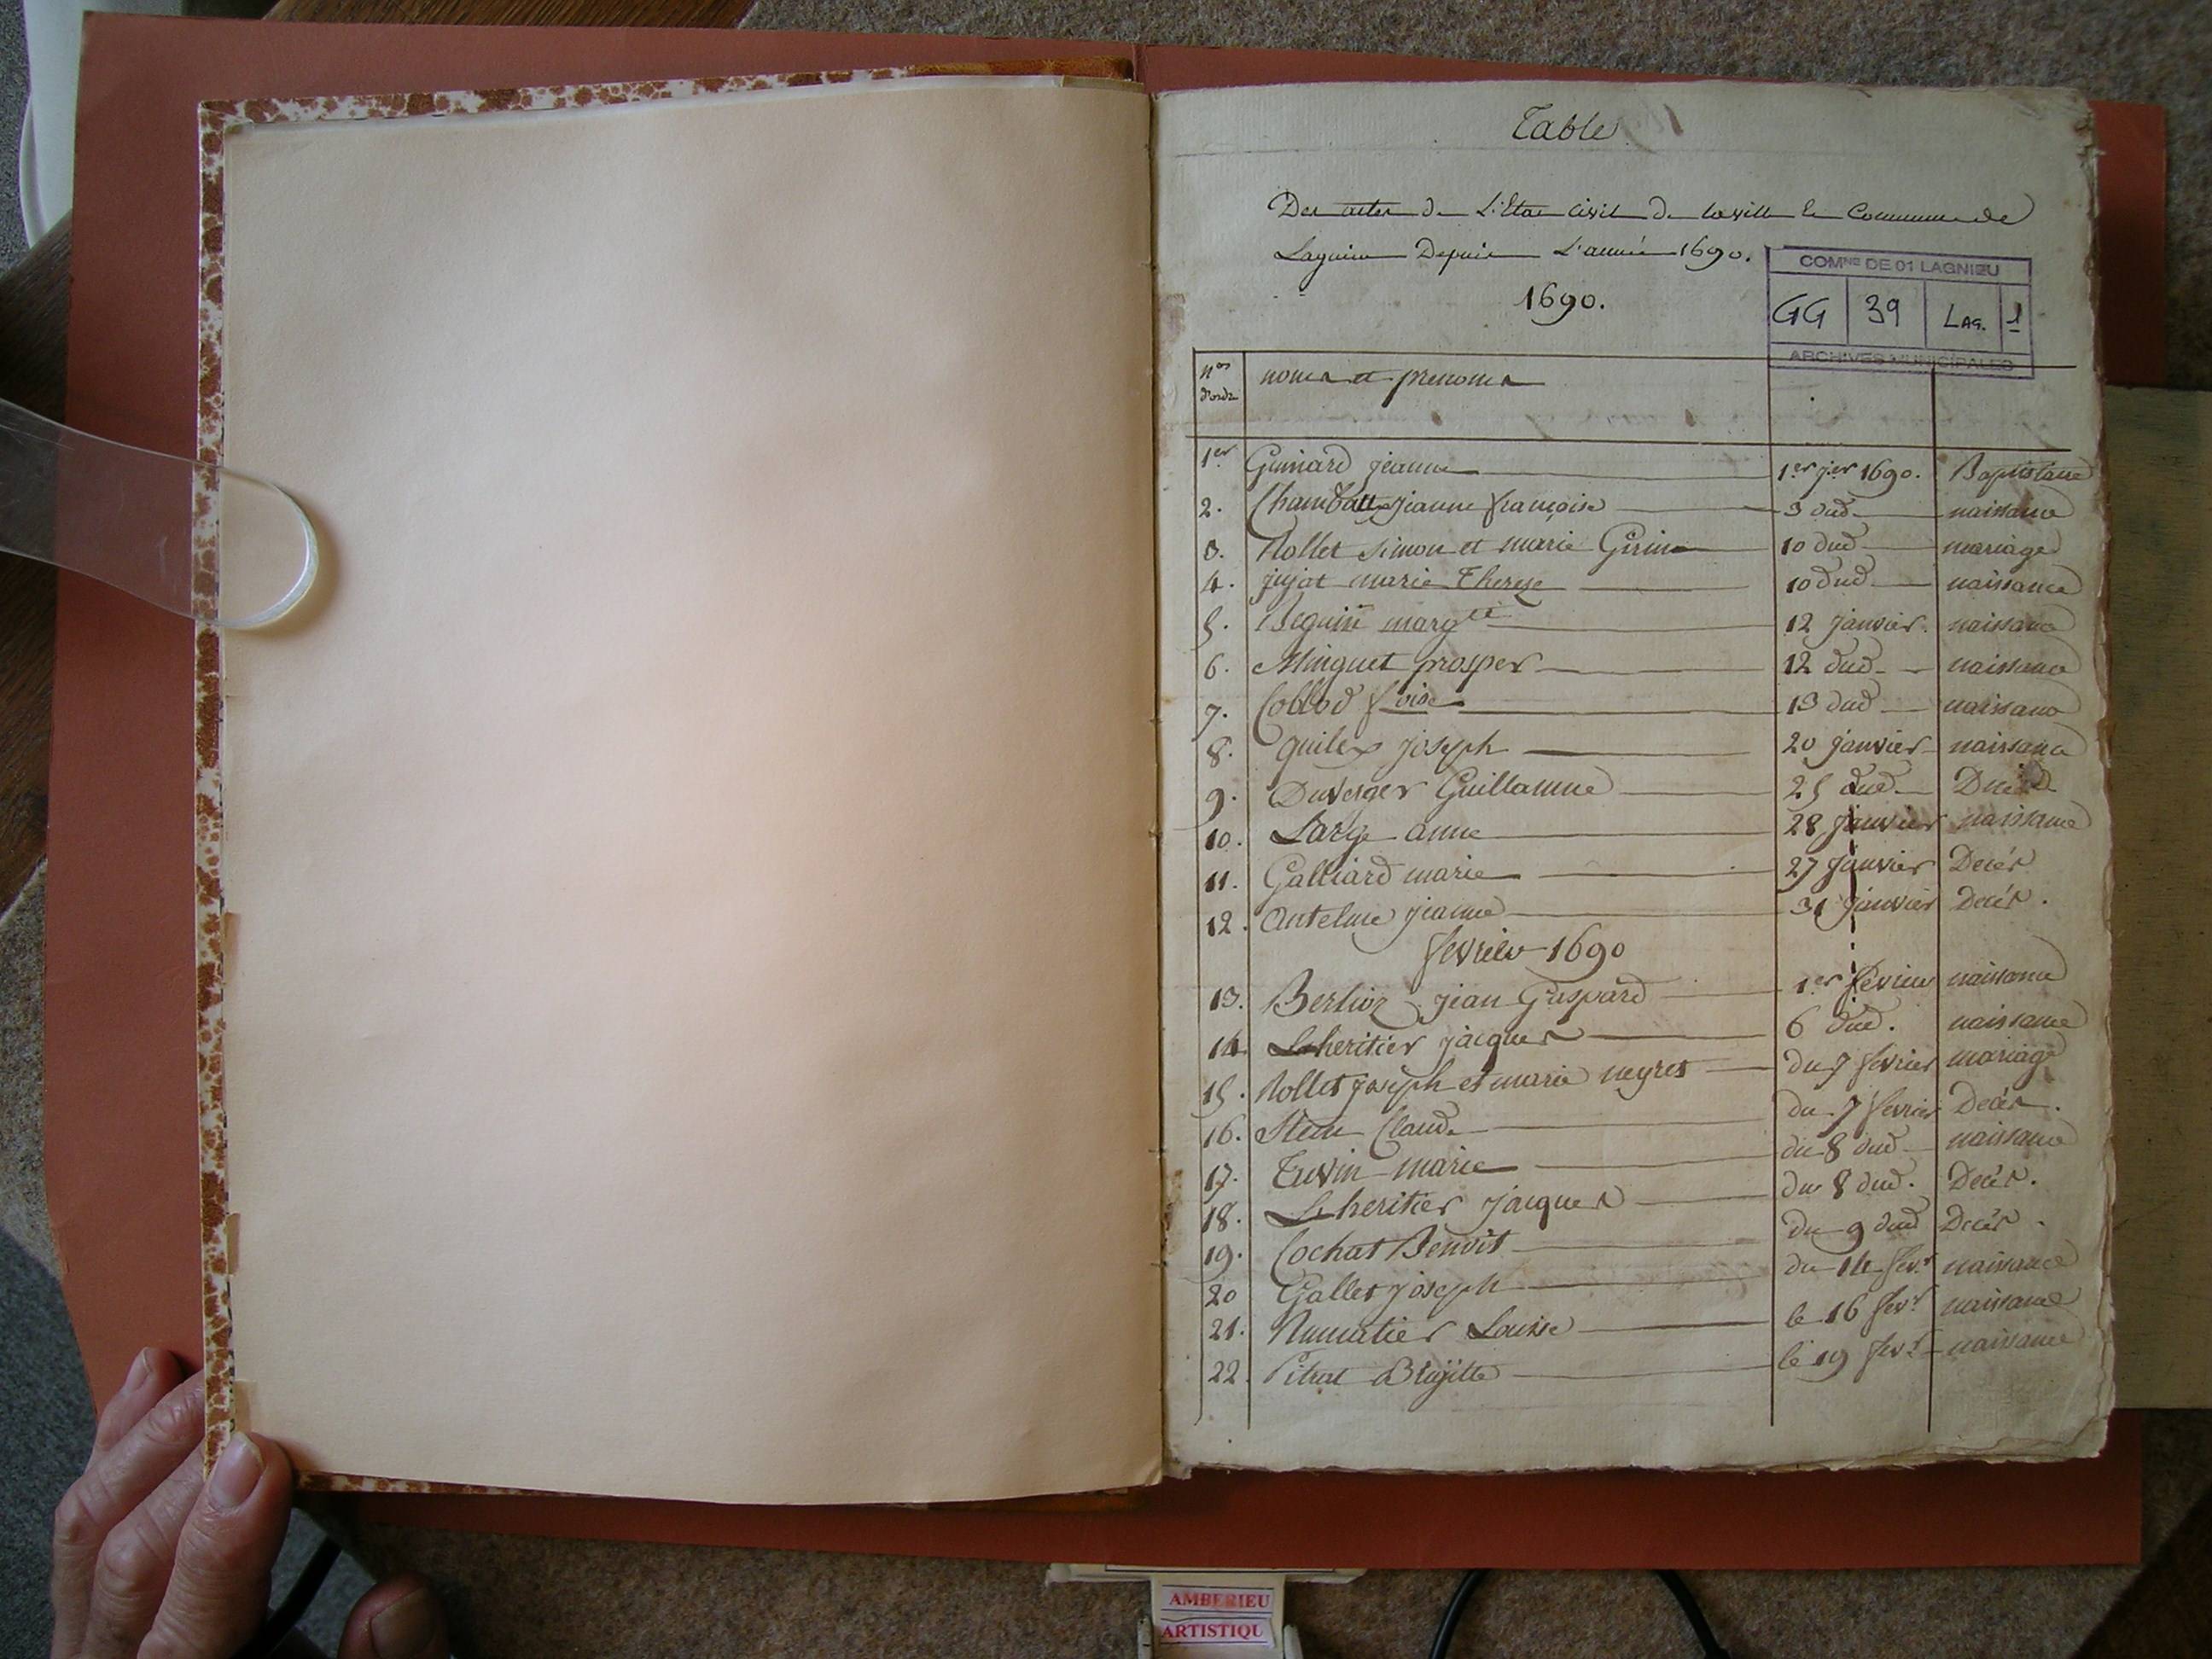 Table
Des actes de L'Etat civil de la ville et Commune de
Lagnieu Depuis L'année 1690.
1690.
COMNE DE 01 LAGNIEU
GG 39 LAG. 1
ARCHIVES MUNICIPALES
nos d'ordre noms et prenoms
1er Guinard jeanne 1er jer 1690. Baptistaire
2. jeanne françoise 3 dud naissance
3. Rollet simon et marie 10 dud mariage
4. jujat marie Therese 10 dud naissance
5. Beguin margte 12 janvier. naissance
6. Minguet prosper 12 dud naissance
7. Collod foise 13 dud naissance
8. quilex joseph 20 janvier naissance
9. Duverger Guillaume 25 dud
10. Large anne 28 janvier naissance
11. Galliard marie 27 janvier Decés
12. Antelme jeanne 31 janvier Decés.
fevrier 1690
13. Berlioz jean Gaspard 1er fevrier naissance
14 Leheritier jacques 6 dud. naissance
15. Rollet joseph et marie neyret du 7 fevrier mariage
16. Claude du 7 fevrier Decés.
17. Tuvin marie du 8 dud naissance
18. Leheritier jacques du 8 dud. Decés.
19. Cochat Benoit du 9 dud Decés.
20 Gallet joseph du 14 fevr naissance
21. Louise le 16 fevr naissance
22. Pitrat Brigitte le 19 fevr naissance
AMBERIEU
ARTISTIQU